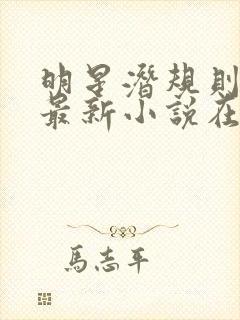 明星潛規則
最新小說在
馬志平